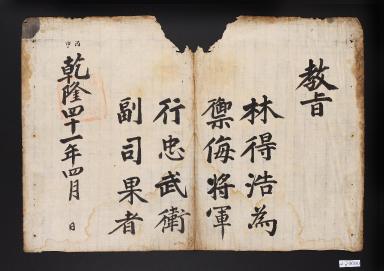 教旨
林得浩為
禦侮將軍
行忠武衛
副司果者
乾隆四十一年四月 日